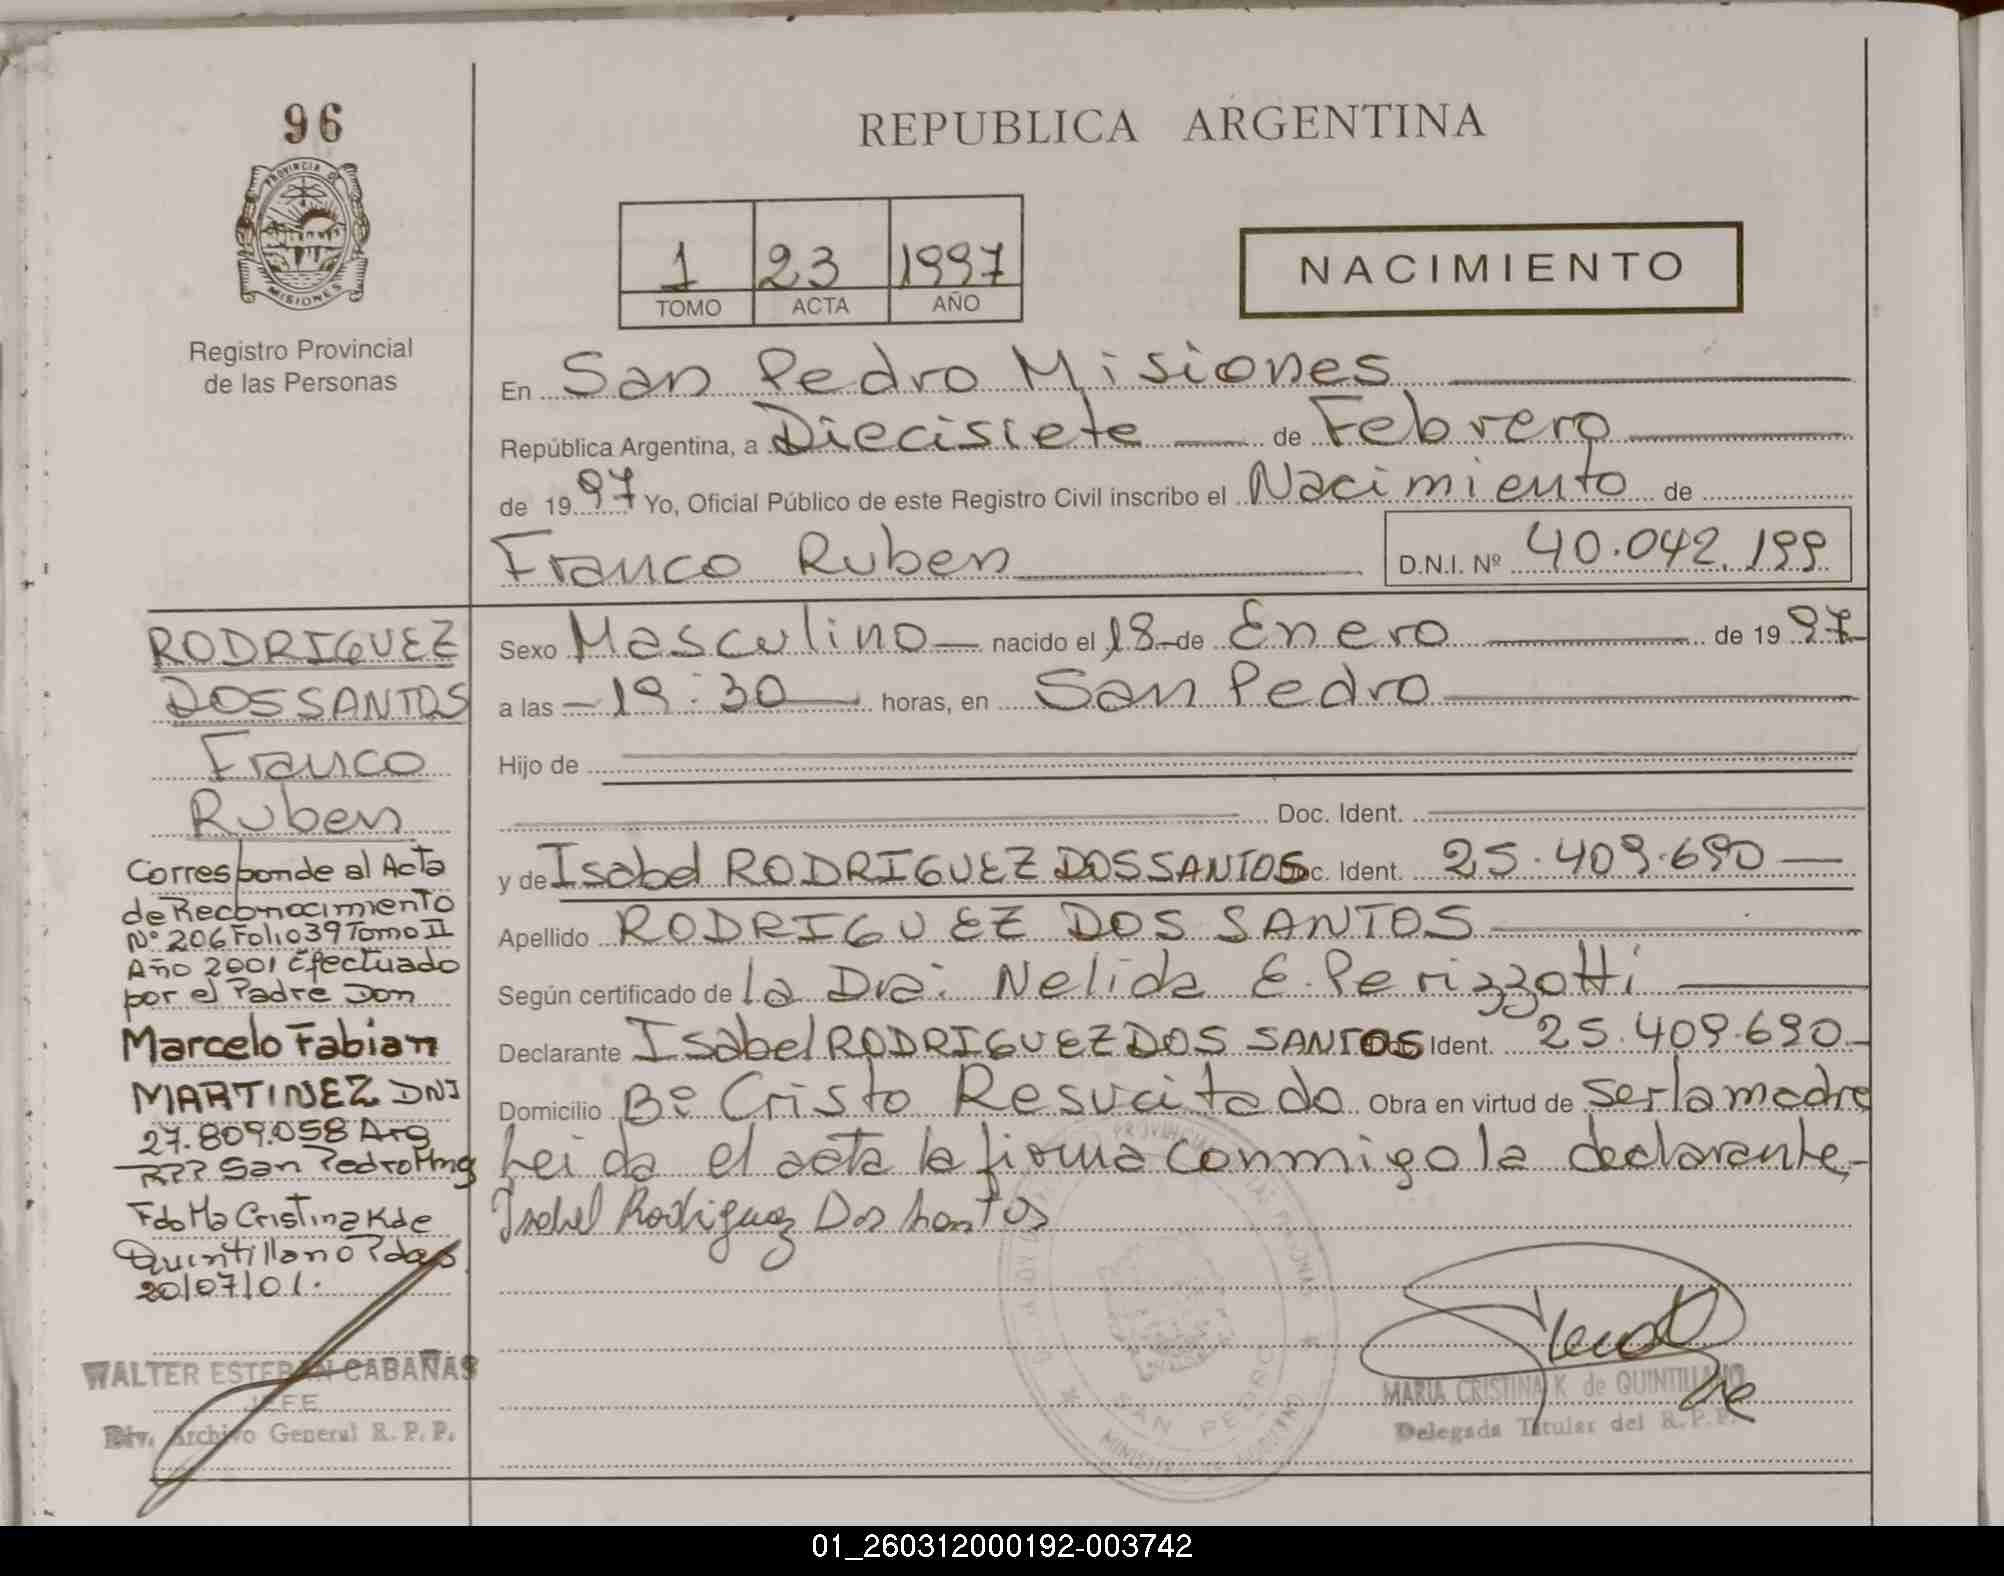 96
PROVINCIA DE
MISIONES
Registro Provincial
de las Personas
REPUBLICA ARGENTINA
1 23 1997
TOMO ACTA AÑO
NACIMIENTO
En San Pedro Misiones
República Argentina, a Diecisiete de Febrero
de 19 97 Yo, Oficial Público de este Registro Civil inscribo el Nacimiento de
Franco Ruben D.N.I. Nº 40.042.199
Sexo Masculino nacido el 18 de Enero de 19 97
a las 19:30 horas, en San Pedro
Hijo de
Doc. Ident.
y de Isabel RODRIGUEZ DOS SANTOS Doc. Ident. 25.409.690
Apellido RODRIGUEZ DOS SANTOS
Según certificado de la Dra: Nelida E. Perizzotti
Declarante Isabel RODRIGUEZ DOS SANTOS Doc. Ident. 25.409.690
Domicilio Bº Cristo Resucitado Obra en virtud de ser la madre
Leida el acta la firma conmigo la declarante,
Isabel Rodriguez Dos Santos
RODRIGUEZ
DOS SANTOS
Franco
Ruben
Corresponde al Acta
de Reconocimiento
Nº 206 Folio 39 Tomo II
Año 2001 Efectuado
por el Padre Don
Marcelo Fabian
MARTINEZ DNI
27.809.058 Arg
RPP San Pedro Mnes
Fdo Ma Cristina K de
Quintillano Pdas
20/07/01.
WALTER ESTEBAN CABAÑAS
JEFE
Div. Archivo General R. P. P.
SAN PEDRO
MARIA CRISTINA K. de QUINTILLANO
Delegada Titular del R. P. P.
01_260312000192-003742